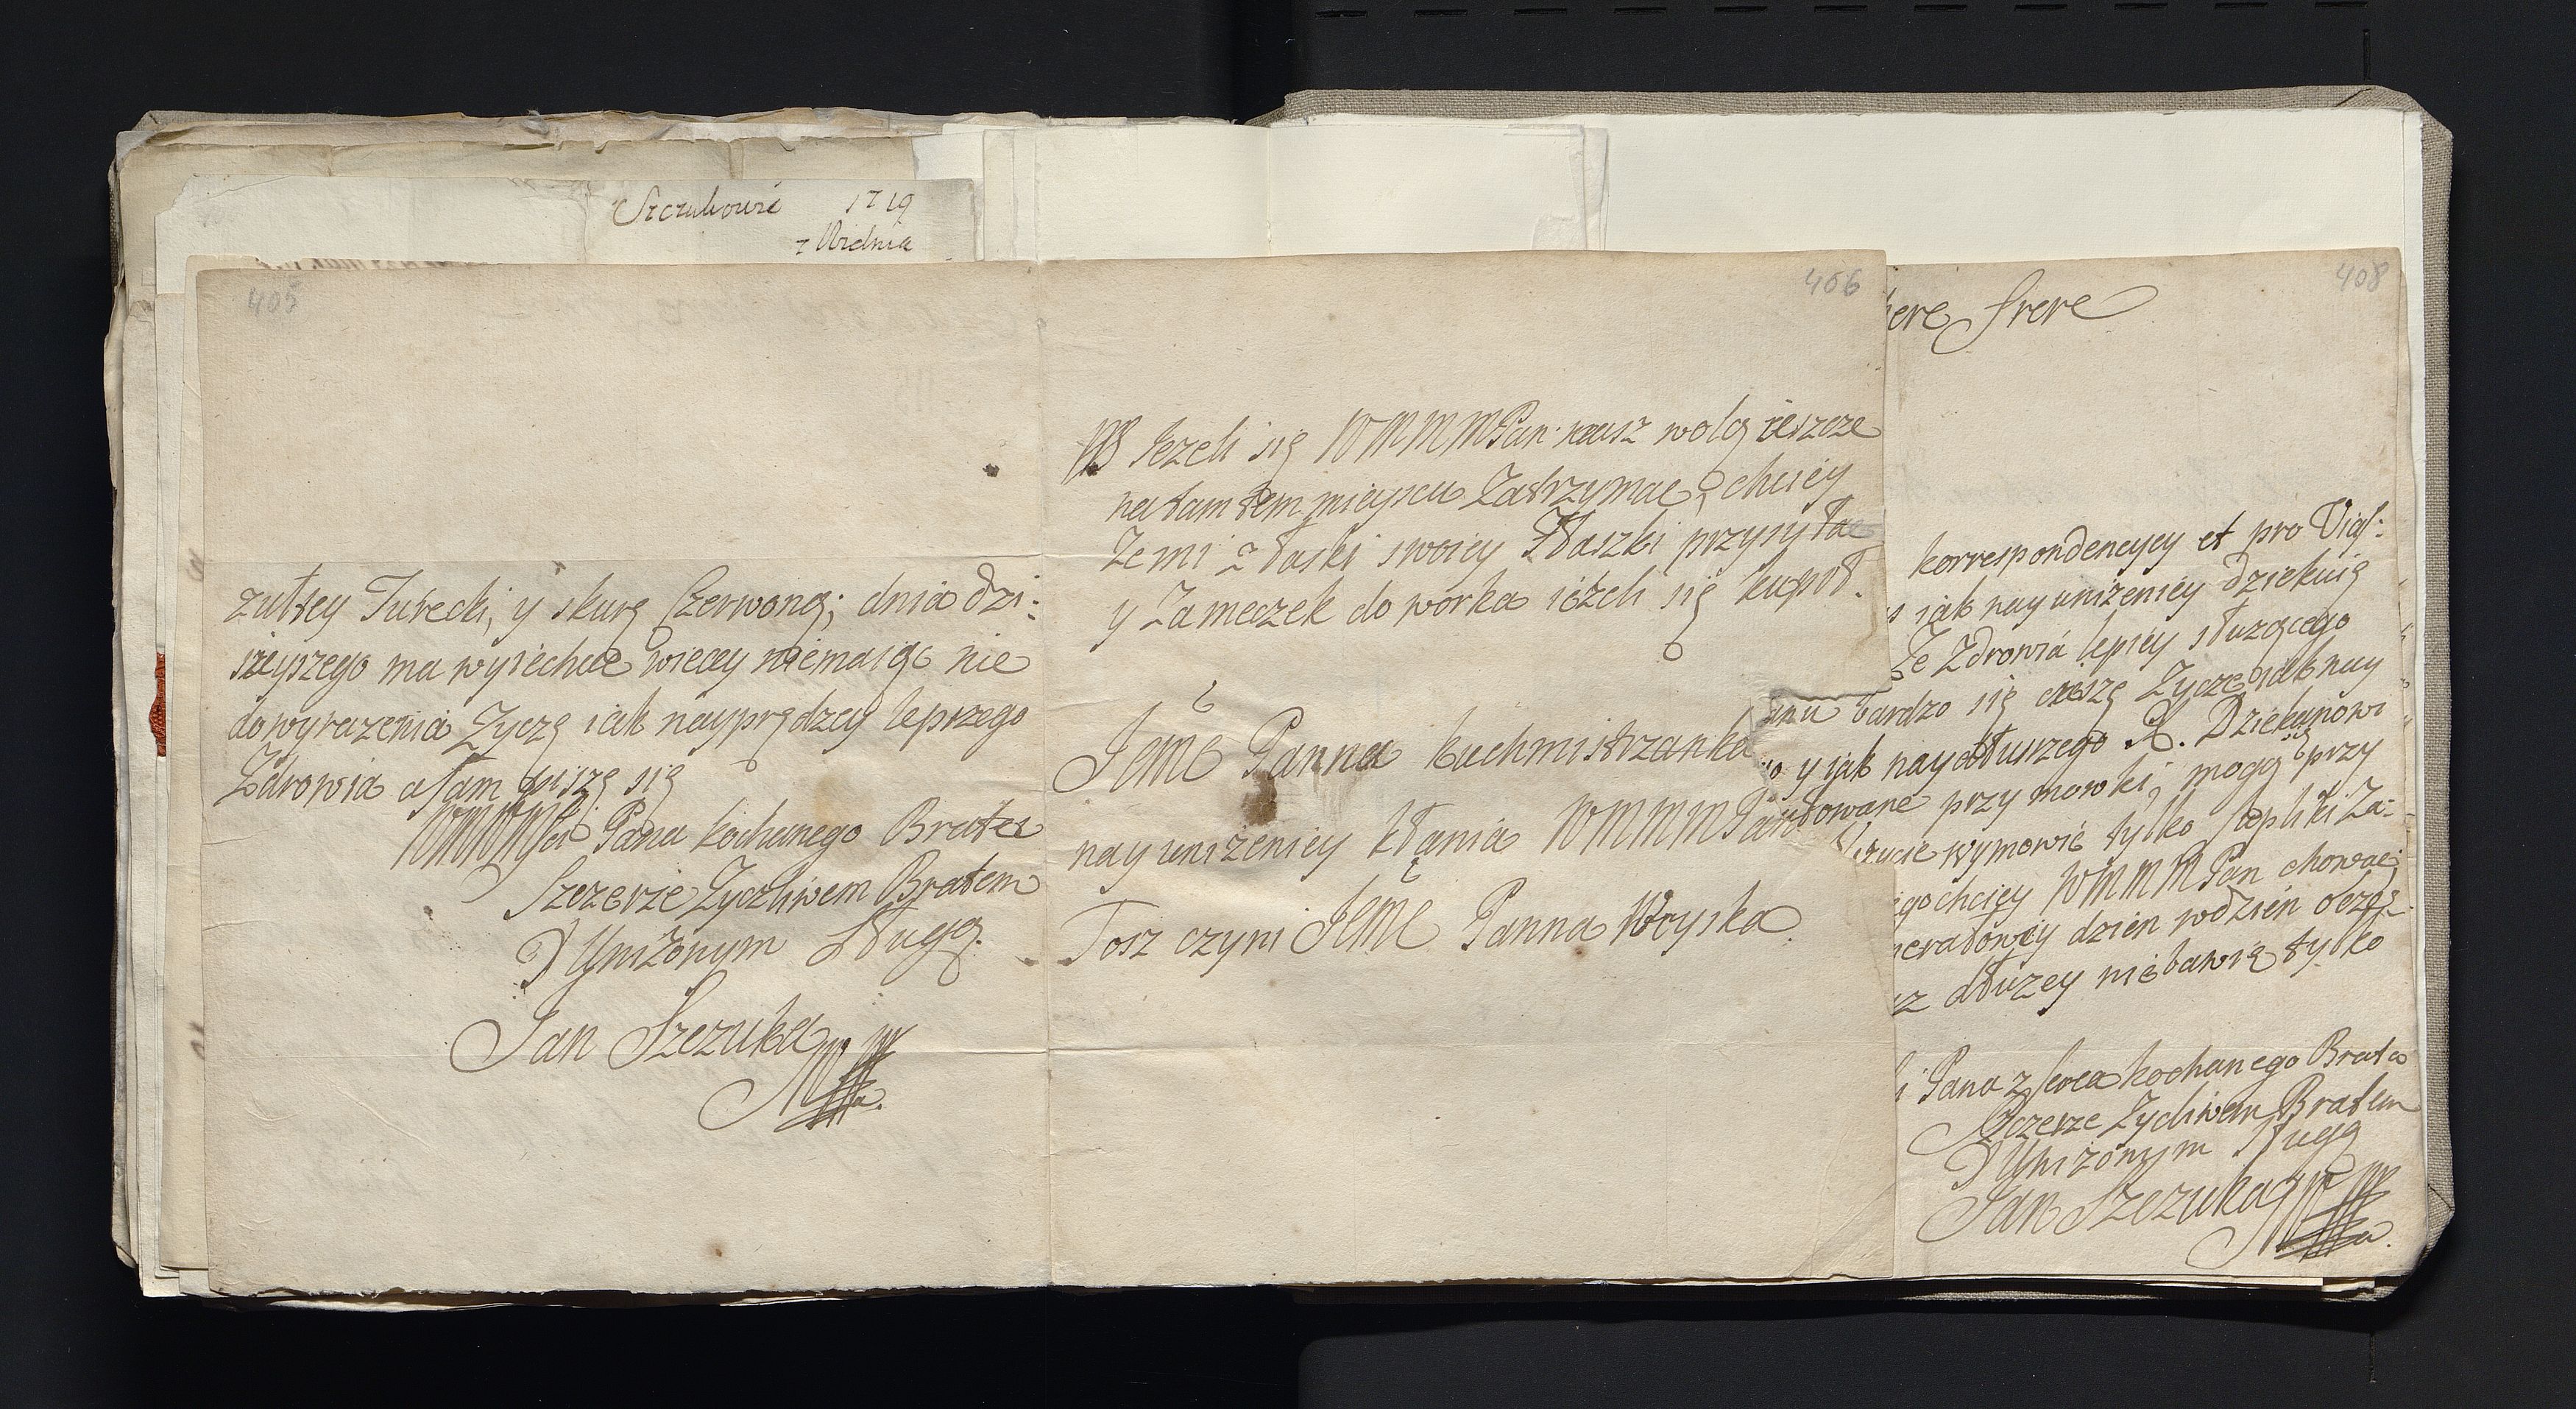 Szczukowie 1719
z Widnia
405
zułtey Turecki, y skurę Czerwoną; dnia dzi:
sieyszego ma wyiechać więcey niemaiąc nie
do wyrazenia Zyczę iak nayprędzey lepszego
Zdrowia a sam piszę się
WMMMPa Pana kochanego Brata
Szczerze Zyczliwem Bratem
Y Unizonym Sługą.
Jan Szczuka
406
NB Jezeli się WMMMPan masz wolą ieszcze
na tamtem mieyscu Zatrzymac, chciey
Ze mi z łaski swoiey Flaszki przysyłac
y Zameczek do worka ieżeli się kupił.
Jemć Panna kuchmistrzanka
nay unizeniey kłania WMMMPanu
Tosz czyni Jemć Panna Wryska.
408
here frere
korrespondencyey et pro Vigi:
iak nay unizeniey dziekuię
Ze Zdrowia lepiey słuzącego
bardzo się cieszę Zyczę iak nay
y jak naydłuszego X. Dziekanowi
przymowki, mogą przy
wymowić tylko repliki Za:
chciey WMMMPan chowac;
dzien wdzień oczę:
dłuzey niebawię tylko
Pana z serca kochanego Brata
Szczerze Zycliwem Bratem
Y Unizonym Sługą
Jan Szczuka